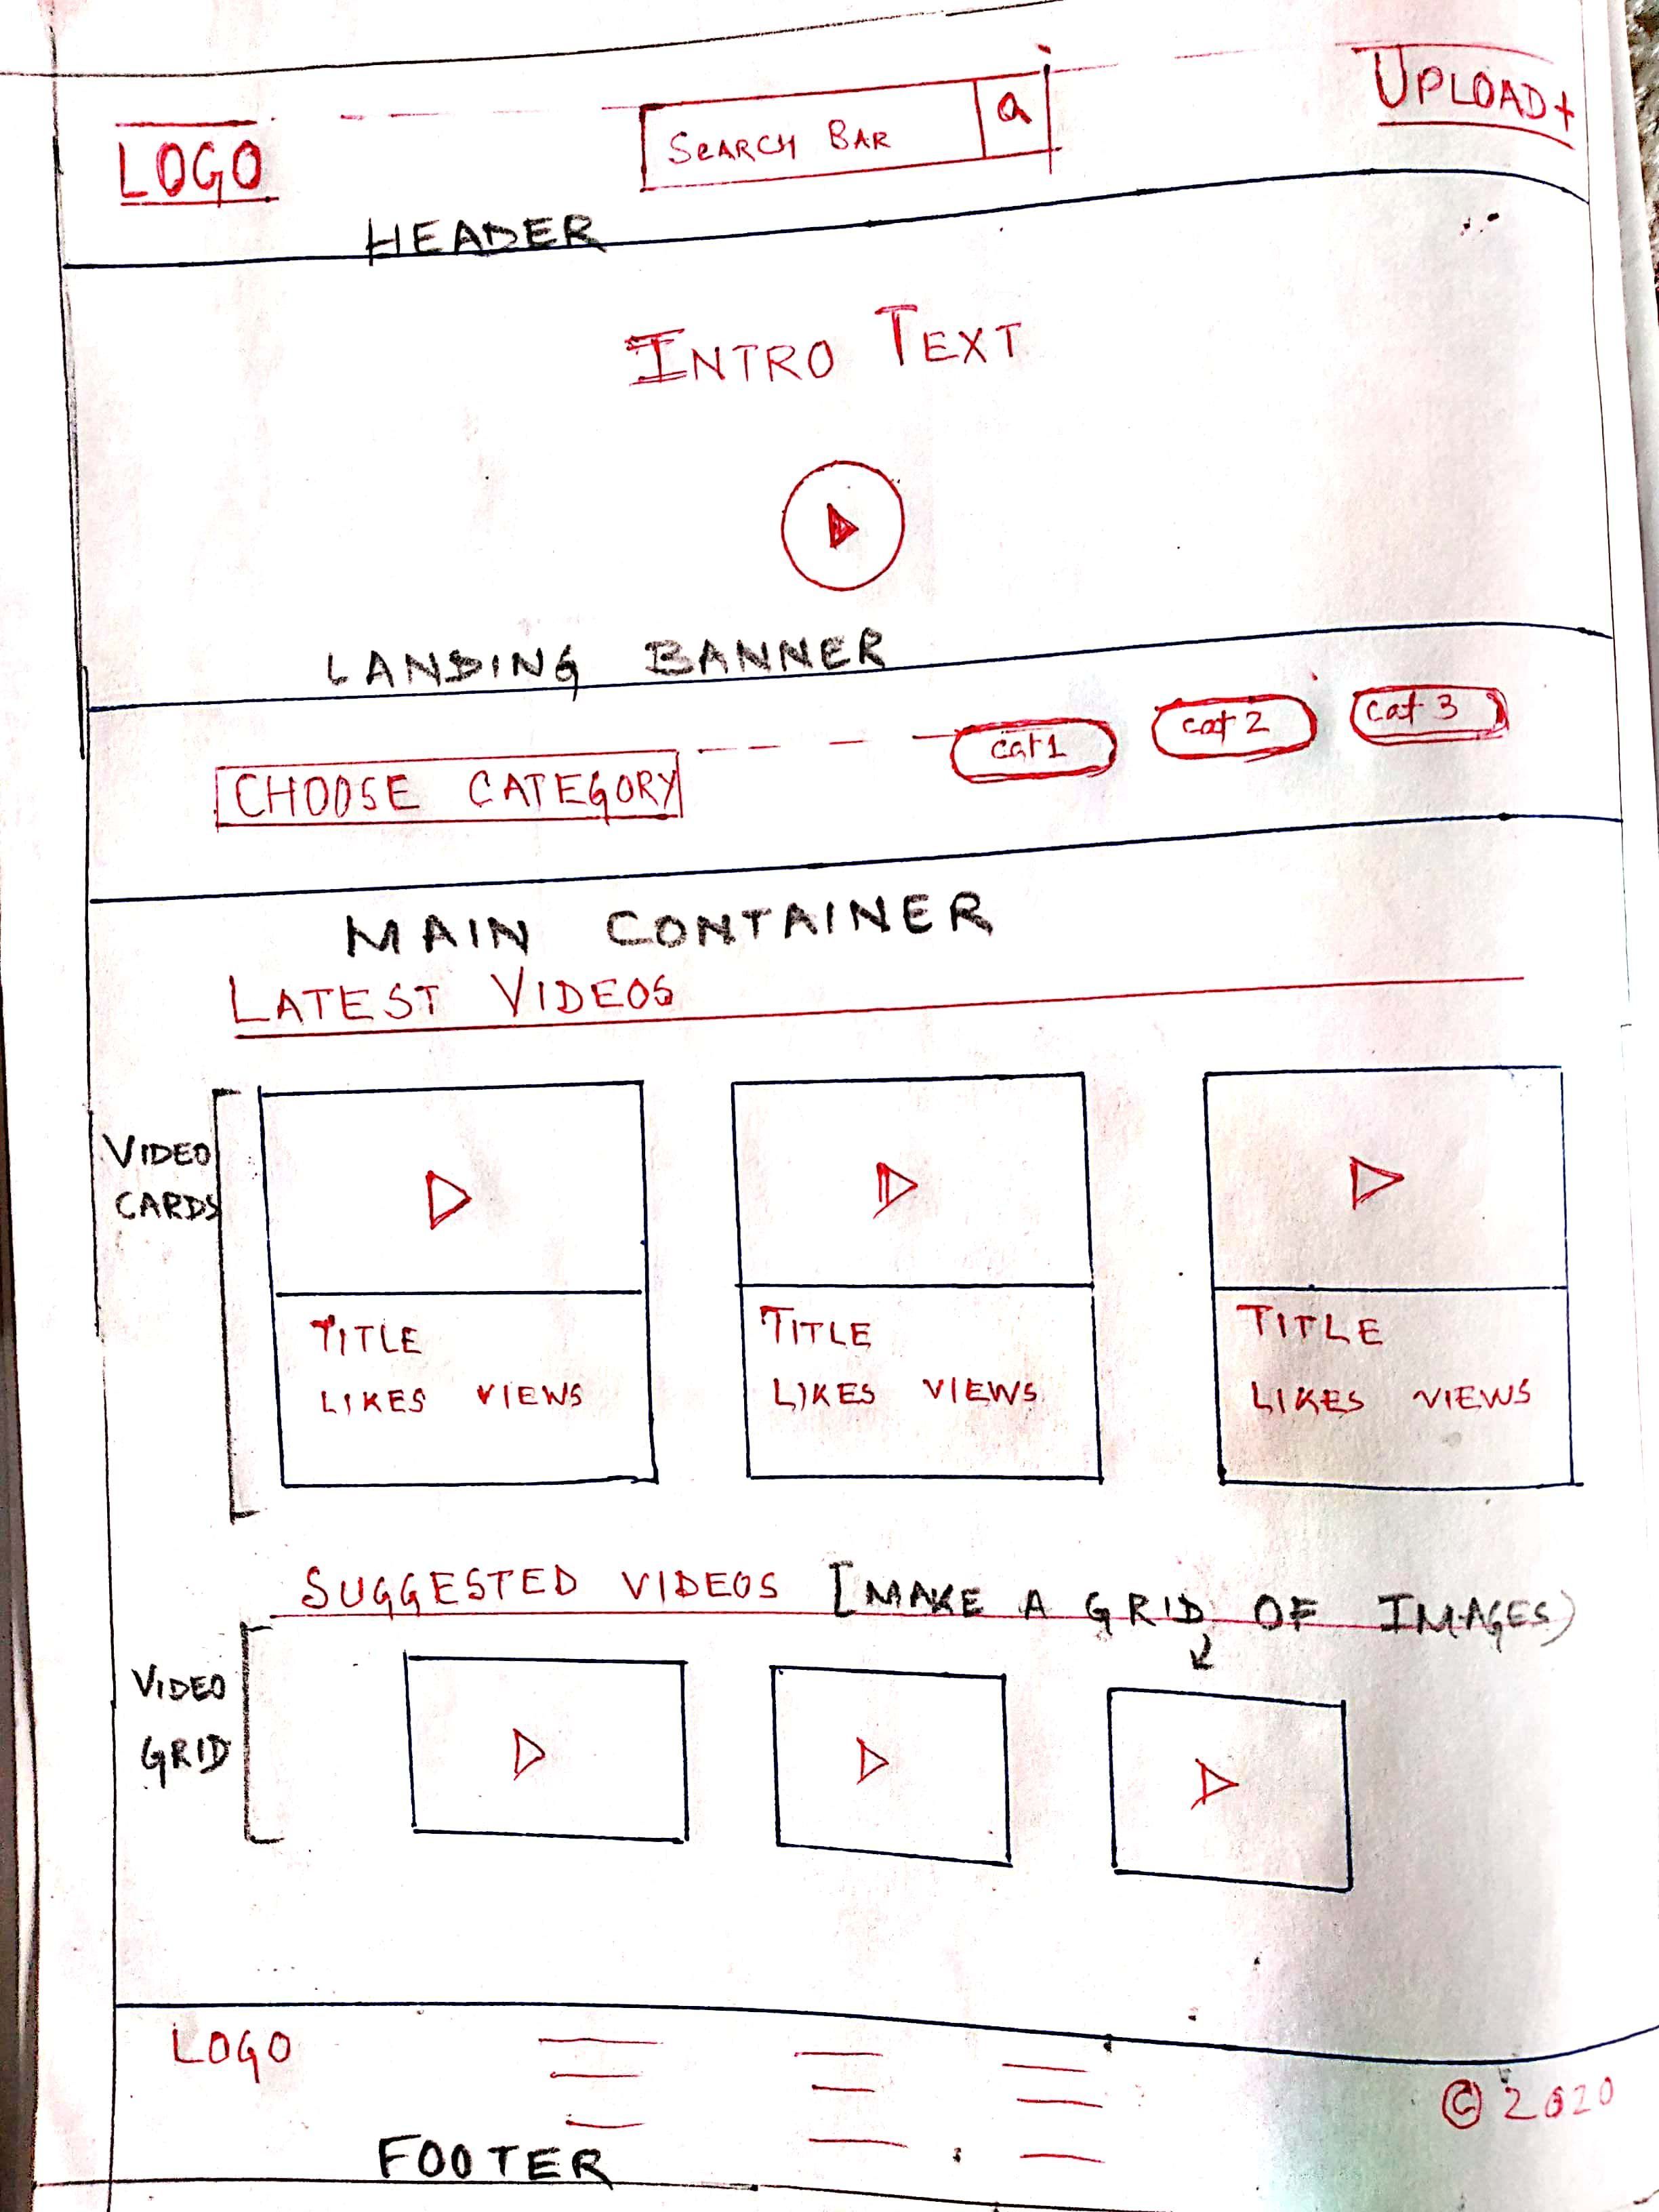 LOGO
SEARCH BAR
UPLOAD+
HEADER
INTRO TEXT
LANDING BANNER
CHOOSE CATEGORY
cat 1
cat 2
cat 3
MAIN CONTAINER
LATEST VIDEOS
VIDEO
CARDS
TITLE
LIKES VIEWS
TITLE
LIKES VIEWS
TITLE
LIKES VIEWS
SUGGESTED VIDEOS [MAKE A GRID OF IMAGES)
VIDEO
GRID
LOGO
© 2020
FOOTER